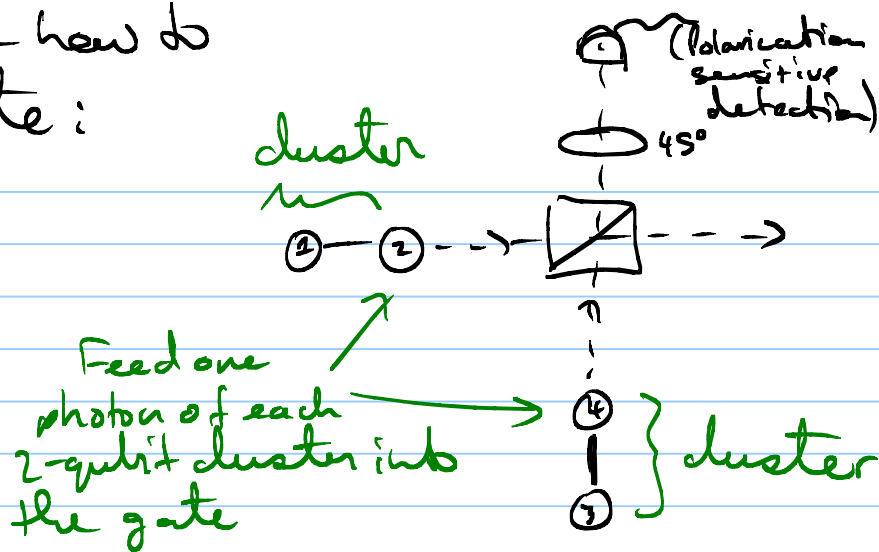 – how to
te:
(Polarization
sensitive
detection)
45°
cluster
1 2
Feed one
photon of each
2-qubit cluster into
the gate
4
cluster
3